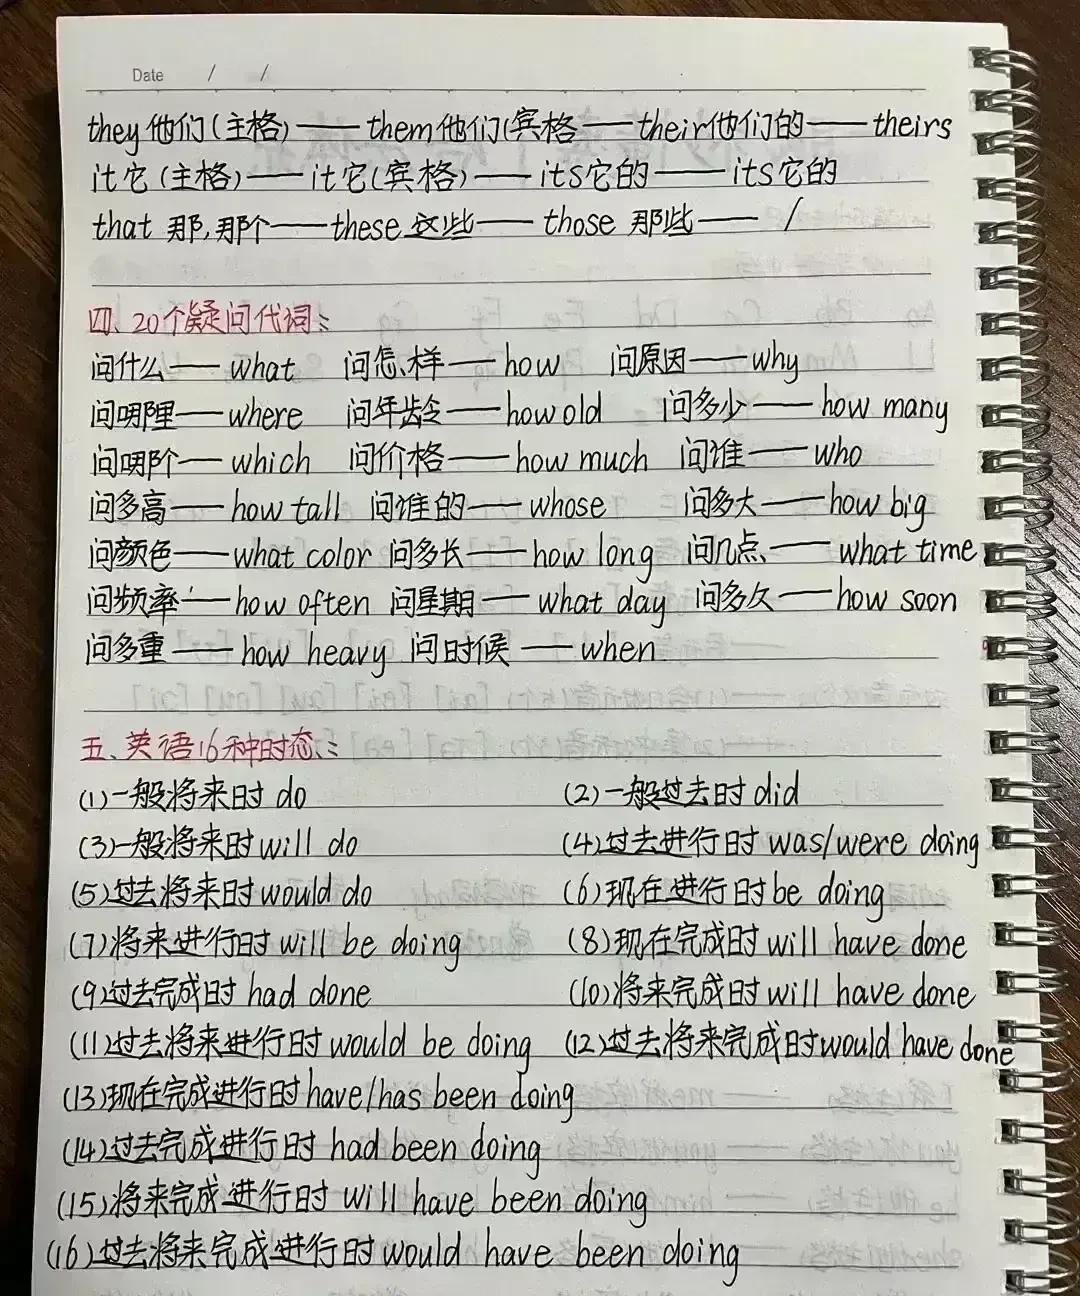 Date / /
they 他们(主格)——them他们(宾格——their他们的——theirs
it它(主格)——it它(宾格)——its它的——its它的
that 那,那个——these 这些——those 那些——/
四、20个疑问代词:
问什么——what 问怎样——how 问原因——why
问哪里——where 问年龄——how old 问多少——how many
问哪个——which 问价格——how much 问谁——who
问多高——how tall 问谁的——whose 问多大——how big
问颜色——what color 问多长——how long 问几点——what time
问频率——how often 问星期——what day 问多久——how soon
问多重——how heavy 问时候——when
五、英语16种时态:
(1)一般将来时 do (2)一般过去时 did
(3)一般将来时 will do (4)过去进行时 was/were doing
(5)过去将来时 would do (6)现在进行时 be doing
(7)将来进行时 will be doing (8)现在完成时 will have done
(9)过去完成时 had done (10)将来完成时 will have done
(11)过去将来进行时 would be doing (12)过去将来完成时would have done
(13)现在完成进行时 have/has been doing
(14)过去完成进行时 had been doing
(15)将来完成进行时 will have been doing
(16)过去将来完成进行时 would have been doing